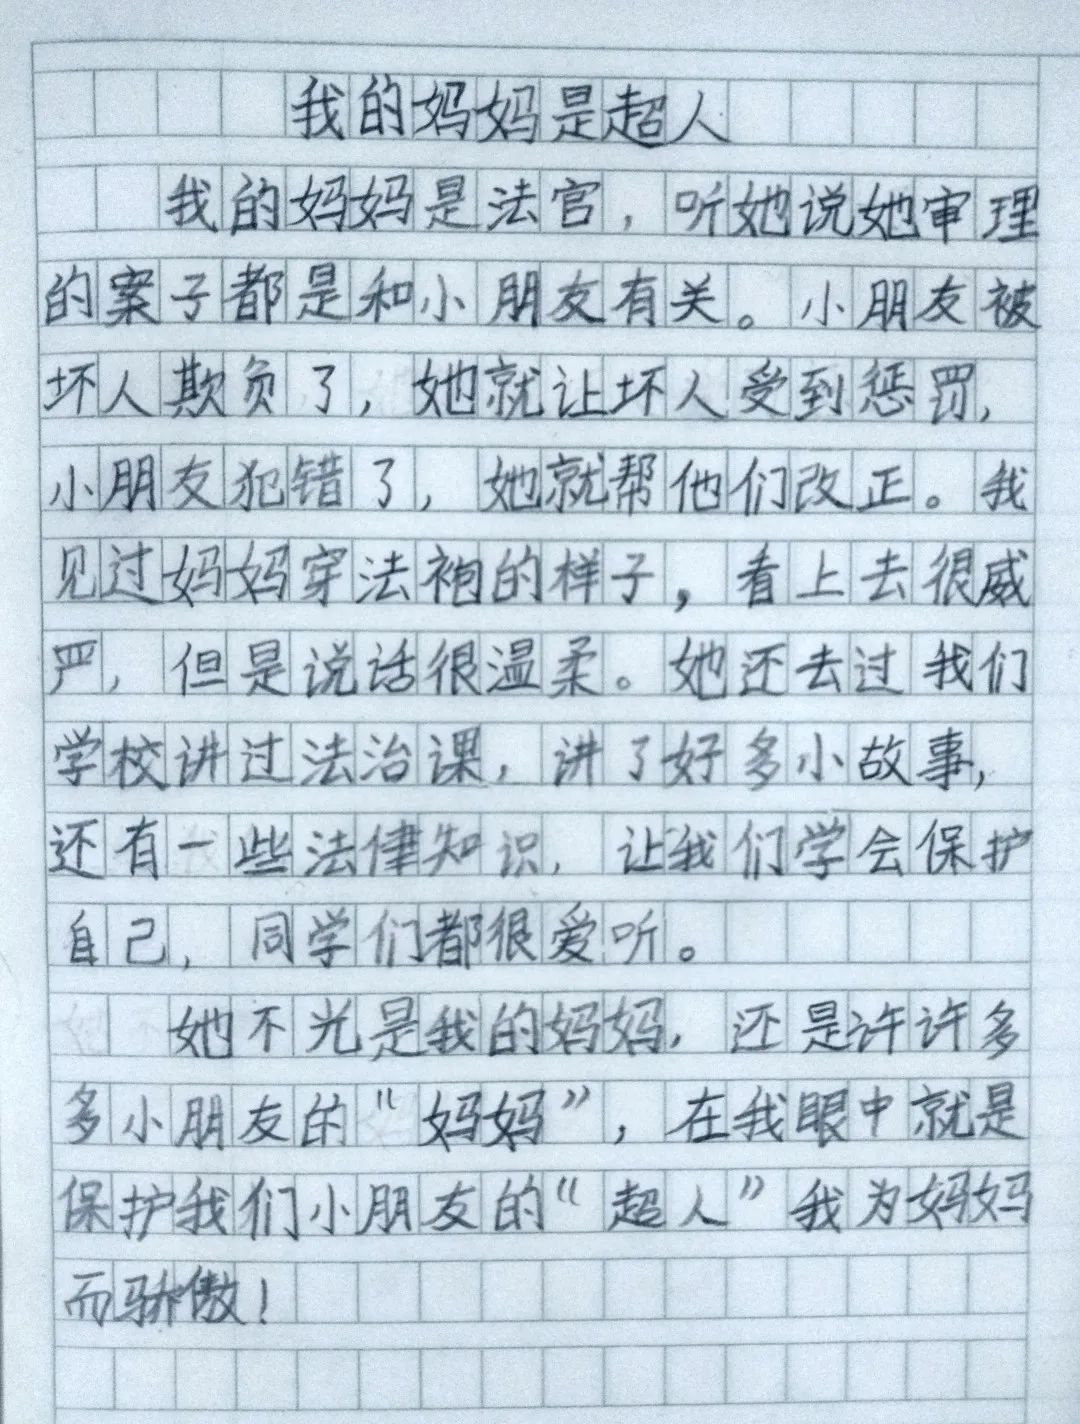 我的妈妈是超人
我的妈妈是法官，听她说她审理
的案子都是和小朋友有关。小朋友被
坏人欺负了，她就让坏人受到惩罚，
小朋友犯错了，她就帮他们改正。我
见过妈妈穿法袍的样子，看上去很威
严，但是说话很温柔。她还去过我们
学校讲过法治课，讲了好多小故事，
还有一些法律知识，让我们学会保护
自己，同学们都很爱听。
她不光是我的妈妈，还是许许多
多小朋友的“妈妈”，在我眼中就是
保护我们小朋友的“超人”我为妈妈
而骄傲！